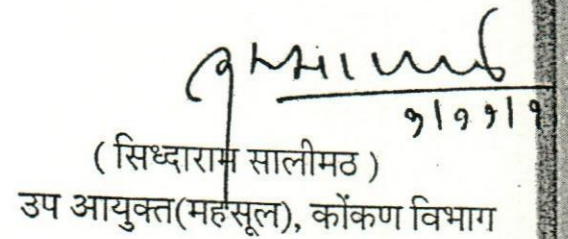 ( सिध्दाराम सालीमठ )
उप आयुक्त(महसूल), कोंकण विभाग